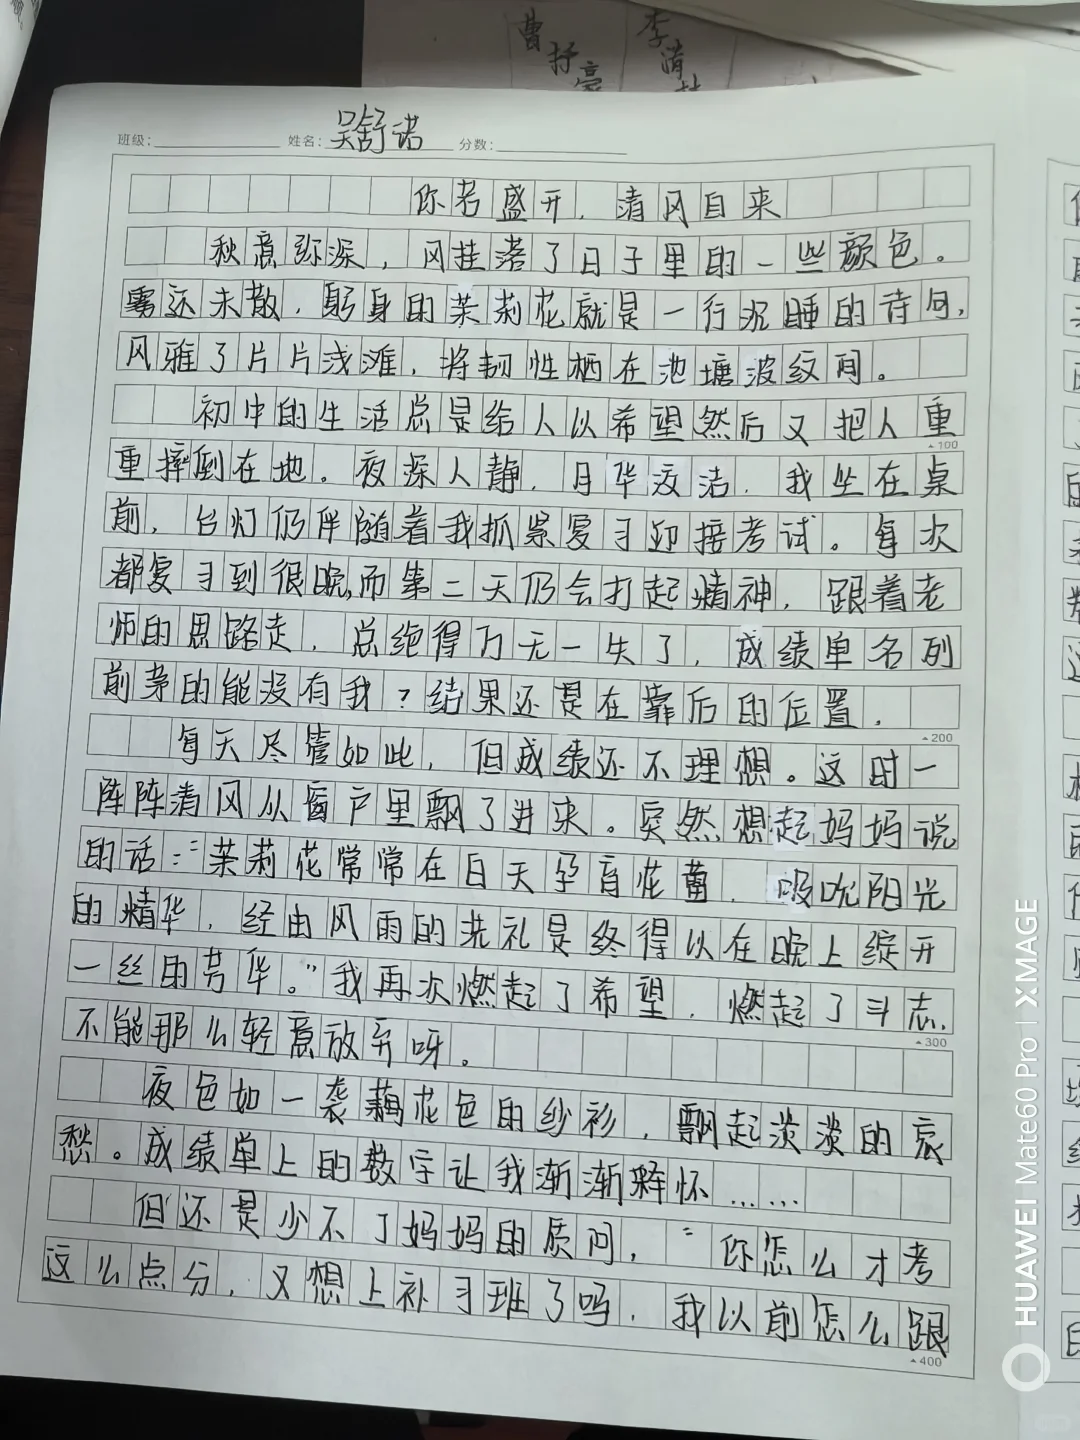 曹抒豪
李清
班级: 姓名: 吴舒诺 分数:
你若盛开，清风自来
秋意弥深，风挂落了日子里的一些颜色。
雾还未散，躬身的茉莉花就是一行沉睡的诗句，
风雅了片片浅滩，将韧性栖在池塘波纹间。
初中的生活总是给人以希望然后又把人重
100
重摔倒在地。夜深人静，月华皎洁，我坐在桌
前，台灯仍伴随着我抓紧复习迎接考试。每次
都复习到很晚，而第二天仍会打起精神，跟着老
师的思路走，总绝得万无一失了，成绩单名列
前茅的能没有我？结果还是在靠后的位置．
200
每天尽管如此，但成绩还不理想。这时一
阵阵清风从窗户里飘了进来。突然想起妈妈说
的话：“茉莉花常常在白天孕育花蕾，吸吮阳光
的精华，经由风雨的洗礼是终得以在晚上绽开
一丝的芳华。”我再次燃起了希望，燃起了斗志，
300
不能那么轻意放弃呀。
夜色如一袭藕花色的纱衫，飘起淡淡的哀
愁。成绩单上的数字让我渐渐释怀……
但还是少不了妈妈的质问，“你怎么才考
这么点分，又想上补习班了吗，我以前怎么跟
400
HUAWEI Mate60 Pro | XMAGE